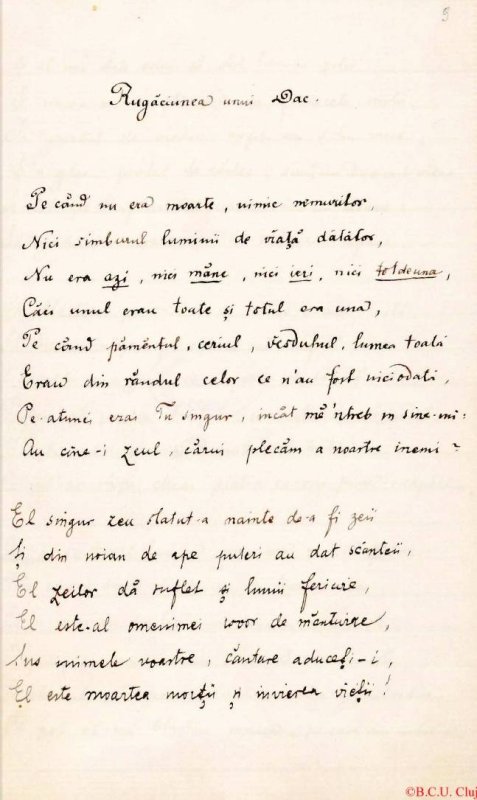 9
Rugăciunea unui Dac.
Pe când nu era moarte, nimic nemuritor,
Nici simburul luminii de viață dătător,
Nu era azi, nici mâne, nici ieri, nici totdeuna,
Căci unul erau toate și totul era una,
Pe când pământul, ceriul, vesduhul, lumea toată
Erau din rândul celor ce n'au fost niciodată,
Pe-atunci erai Tu singur, încât mă 'ntreb în sine-mi:
Au cine-i zeul, cărui plecăm a noastre inemi?
El singur zeu stătut-a nainte de-a fi zeii
Și din noian de ape puteri au dat scânteii,
El zeilor dă suflet și lumii fericire,
El este-al omenimei isvor de mântuire,
Sus inimele voastre, cântare aduceți-i,
El este moartea morții și învierea vieții!
©B.C.U. Cluj